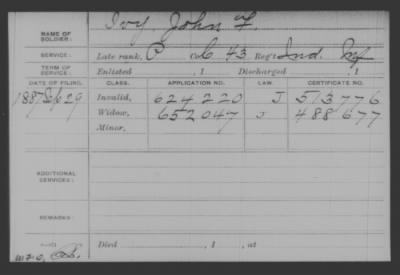 NAME OF SOLDIER: Ivy, John F.
SERVICE: Late rank, P Co. C 43 Reg't Ind. Inf
TERM OF SERVICE: Enlisted , 1 Discharged , 1
DATE OF FILING. CLASS. APPLICATION NO. LAW. CERTIFICATE NO.
1887 29 Invalid, 624220 J 513776
Widow, 652047 J 488677
Minor,
ADDITIONAL SERVICES:
REMARKS:
Died , 1 , at